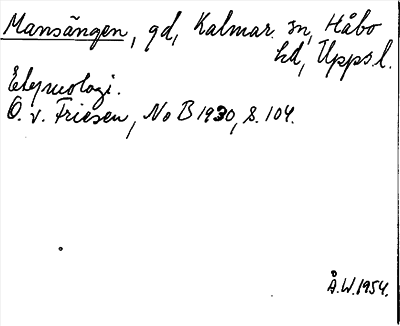 Mansängen, gd, Kalmar sn, Håbo
hd, Uppsl.
Etymologi.
O. v. Friesen, No B 1930, s. 104.
Å.W. 1954.